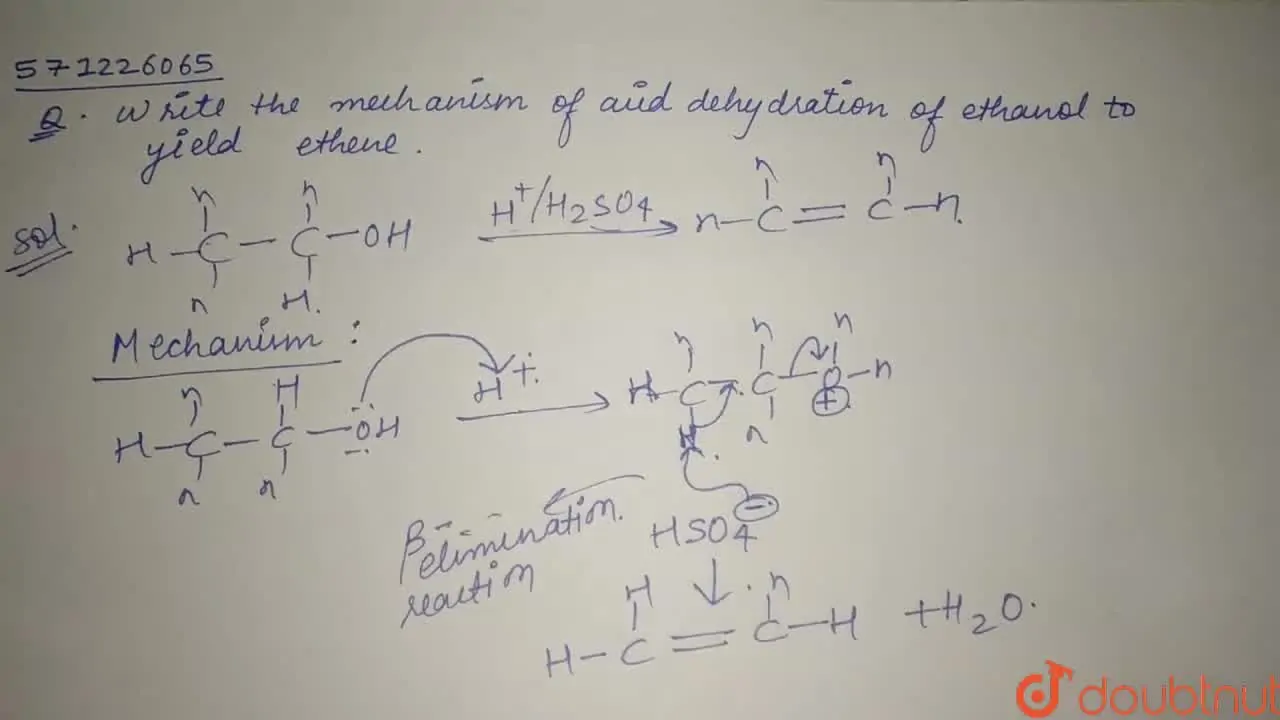 571226065
Q. Write the mechanism of acid dehydration of ethanol to
yield ethene.
Sol.
H H
H – C – C – OH H+/H2SO4 H – C = C – H.
H H.
H H
Mechanism :
H H
H – C – C – ÖH H+.
H H
H H H
H – C – C – O – H
H H ⊕.
β-elimination.
reaction
HSO4 ⊖
H H
H – C = C – H + H2O.
doubtnut